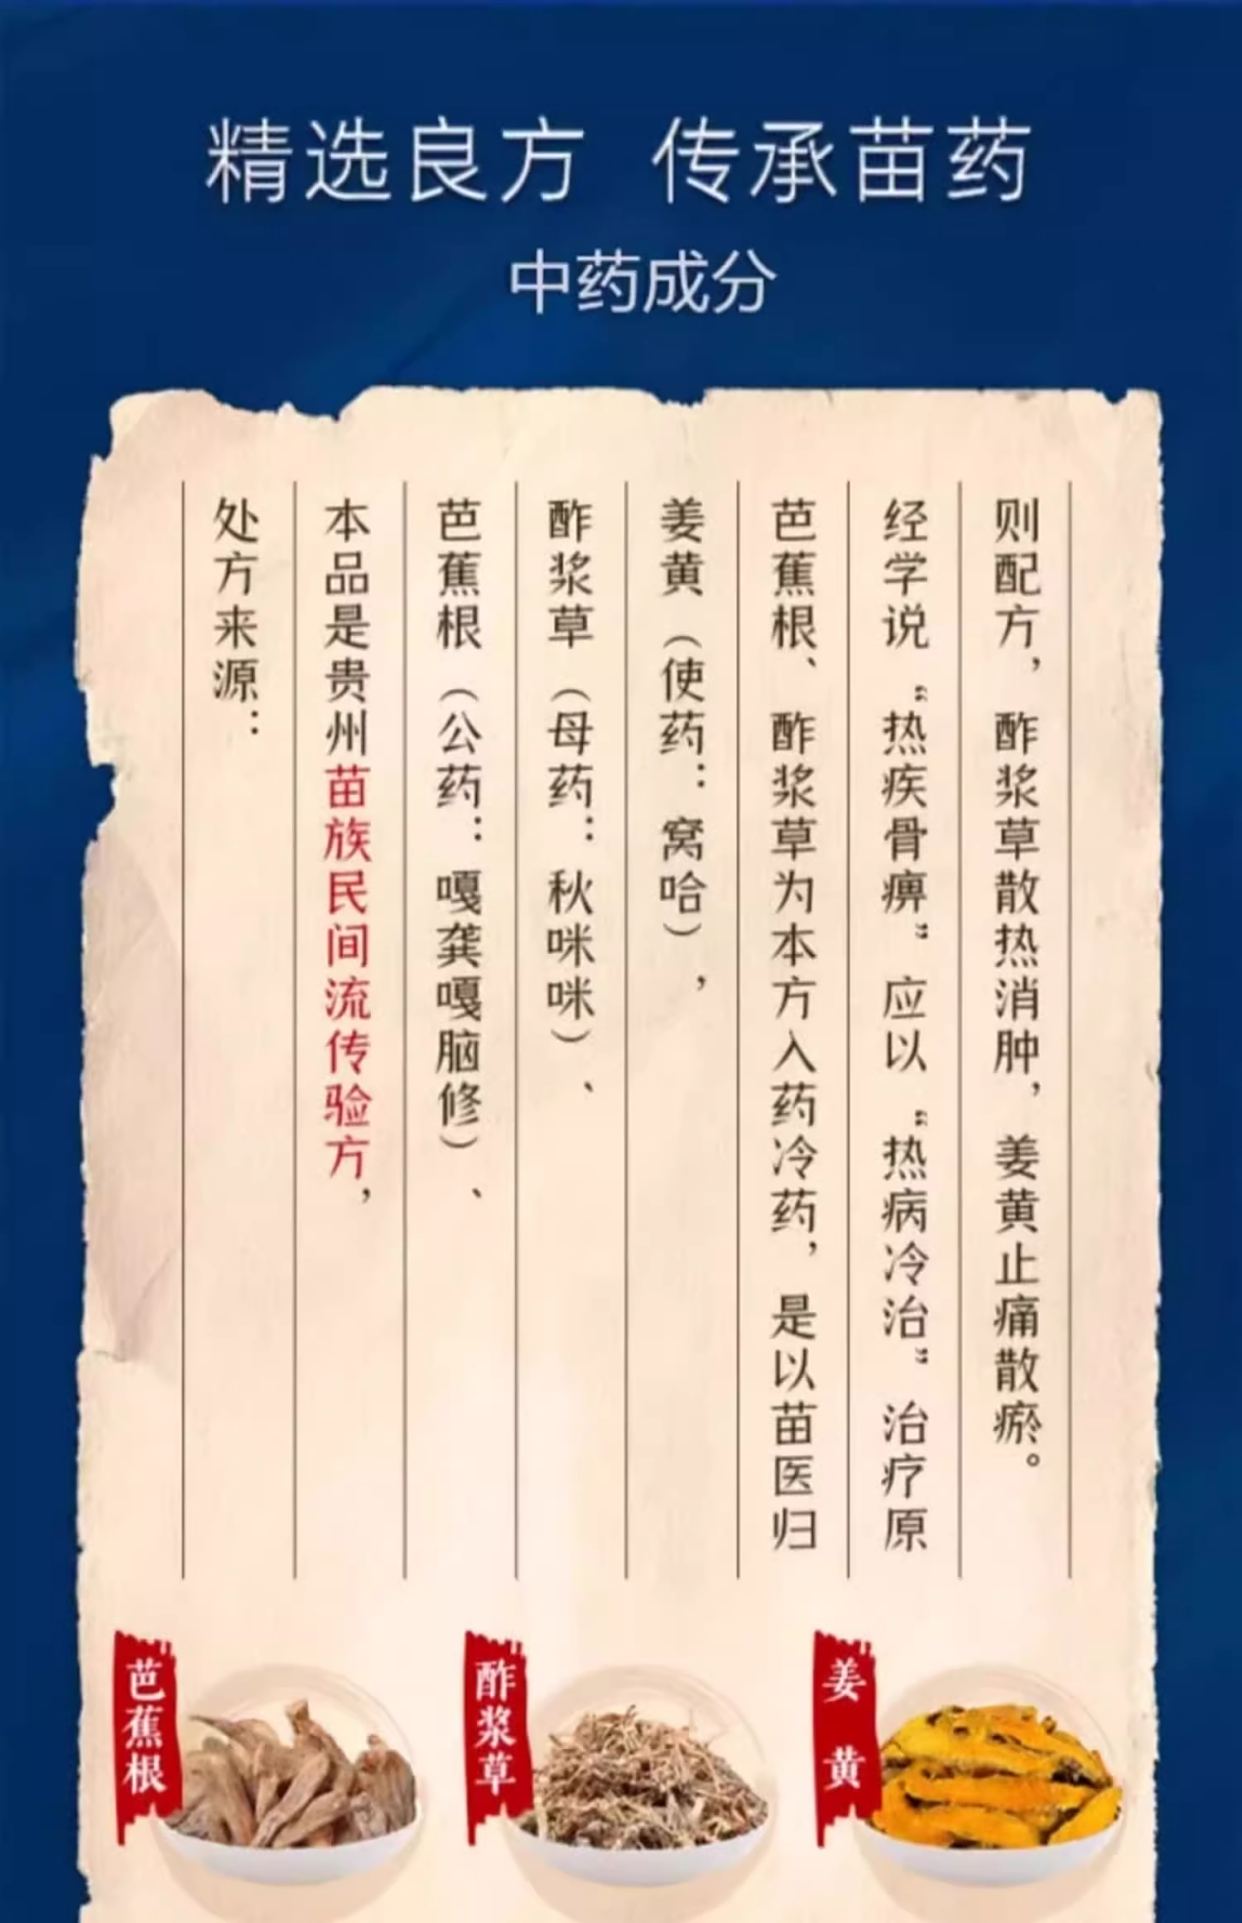 精选良方 传承苗药
中药成分
处方来源：
本品是贵州苗族民间流传验方，
芭蕉根（公药：嘎龚嘎脑修）、
酢浆草（母药：秋咪咪）、
姜黄（使药：窝哈），
芭蕉根、酢浆草为本方入药冷药，是以苗医归
经学说“热疾骨痹”应以“热病冷治”治疗原
则配方，酢浆草散热消肿，姜黄止痛散瘀。
芭蕉根
酢浆草
姜黄